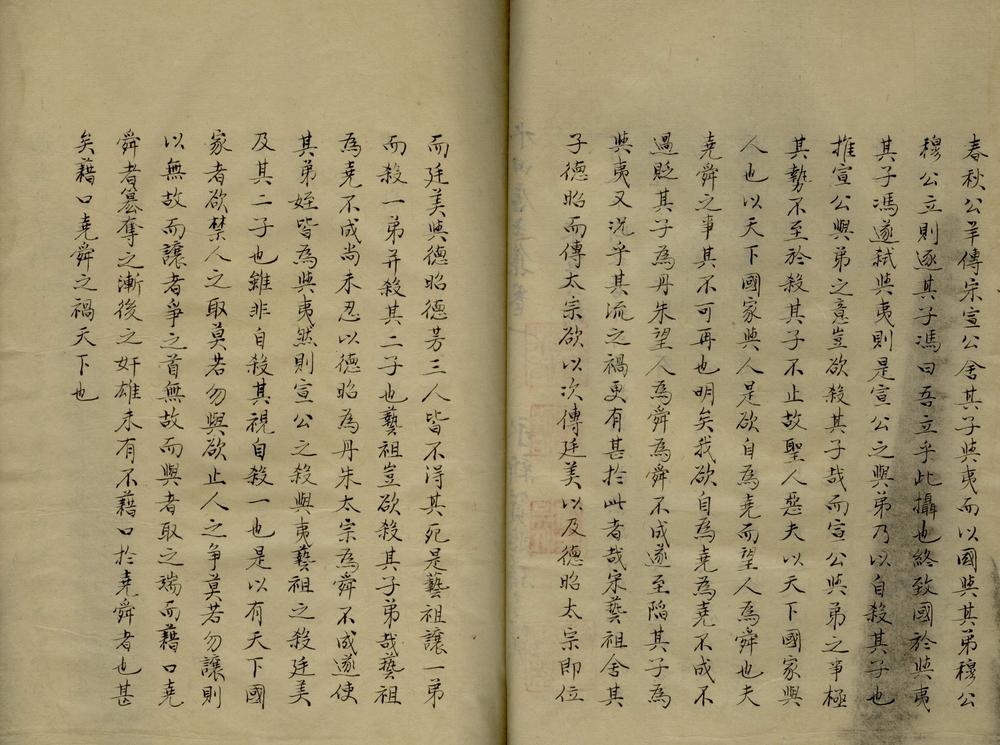 春秋公羊傳宗宣公舍其子與夷而以國與其弟穆公
穆公立則逐其子馮曰吾立乎此攝也終致國於與夷
其子馮遂弑與夷則是宣公之與弟乃以自殺其子也
推宣公與弟之意豈欲殺其子哉而宣公與弟之爭極
其勢不至於殺其子不止故聖人惡夫以天下國家與
人也以天下國家與人是欲自為堯而望人為舜也夫
堯舜之事其不可再也明矣我欲自為堯為堯不成不
過貶其子為丹朱望人為舜為舜不成遂至陷其子為
與夷又況乎其流之禍更有甚於此者哉宋藝祖舍其
子德昭而傳太宗欲以次傳廷美以及德昭太宗即位
而廷美與德昭德芳三人皆不得其死是藝祖讓一弟
而殺一弟并殺其二子也藝祖豈欲殺其子弟哉藝祖
為堯不成尚未忍以德昭為丹朱太宗為舜不成遂使
其弟姪皆為與夷然則宣公之殺與夷藝祖之殺廷美
及其二子也雖非自殺其視自殺一也是以有天下國
家者欲禁人之取莫若勿與欲止人之爭莫若勿讓則
以無故而讓者爭之首無故而與者取之端而藉口堯
舜者篡奪之漸後之奸雄未有不藉口於堯舜者也甚
矣藉口堯舜之禍天下也